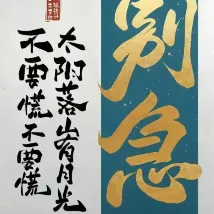 别急
太阳落山有月光
不要慌不要慌